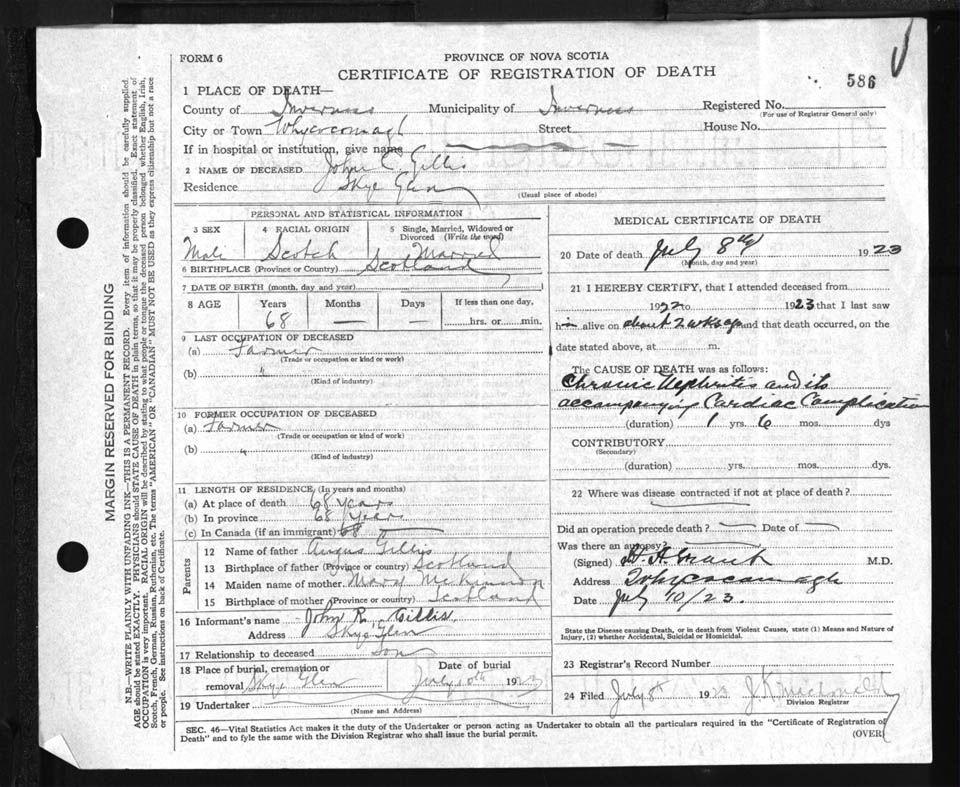 FORM 6
PROVINCE OF NOVA SCOTIA
CERTIFICATE OF REGISTRATION OF DEATH
586
1 PLACE OF DEATH—
County of Inverness Municipality of Inverness Registered No.
(For use of Registrar General only)
City or Town Whycocomagh Street House No.
If in hospital or institution, give name
2 NAME OF DECEASED John C. Gillis
Residence Skye Glen
(Usual place of abode)
PERSONAL AND STATISTICAL INFORMATION
3 SEX 4 RACIAL ORIGIN 5 Single, Married, Widowed or Divorced (Write the word)
Male Scotch Married
6 BIRTHPLACE (Province or Country) Scotland
7 DATE OF BIRTH (month, day and year)
8 AGE Years Months Days If less than one day,
68 — — hrs. or min.
9 LAST OCCUPATION OF DECEASED
(a) Farmer
(Trade or occupation or kind or work)
(b) "
(Kind of industry)
10 FORMER OCCUPATION OF DECEASED
(a) Farmer
(Trade or occupation or kind of work)
(b) "
(Kind of industry)
11 LENGTH OF RESIDENCE (In years and months)
(a) At place of death 68 years
(b) In province 68 years
(c) In Canada (if an immigrant) 68
Parents
12 Name of father Angus Gillis
13 Birthplace of father (Province or country) Scotland
14 Maiden name of mother Mary McKinnon
15 Birthplace of mother (Province or country) Scotland
16 Informant's name John R. Gillis
Address Skye Glen
17 Relationship to deceased Son
18 Place of burial, cremation or Date of burial
removal Skye Glen July 10th 1923
19 Undertaker
(Name and Address)
MEDICAL CERTIFICATE OF DEATH
20 Date of death July 8th 1923
(Month, day and year)
21 I HEREBY CERTIFY, that I attended deceased from
1922 to 1923 that I last saw
him alive on about 2 wks ago and that death occurred, on the
date stated above, at m.
The CAUSE OF DEATH was as follows:
Chronic Nephritis and its
accompanying Cardiac Complication
(duration) 1 yrs. 6 mos. dys
CONTRIBUTORY
(Secondary)
(duration) yrs. mos. dys.
22 Where was disease contracted if not at place of death?
Did an operation precede death? — Date of —
Was there an autopsy?
(Signed) H. A. Grant M.D.
Address Whycocomagh
Date July 10/23.
State the Disease causing Death, or in death from Violent Causes, state (1) Means and Nature of
Injury, (2) whether Accidental, Suicidal or Homicidal.
23 Registrar's Record Number
24 Filed July 8th 1923 J. K. Macdonald
Division Registrar
SEC. 46—Vital Statistics Act makes it the duty of the Undertaker or person acting as Undertaker to obtain all the particulars required in the "Certificate of Registration of
Death" and to fyle the same with the Division Registrar who shall issue the burial permit.
(OVER)
MARGIN RESERVED FOR BINDING
N.B.—WRITE PLAINLY WITH UNFADING INK—THIS IS A PERMANENT RECORD. Every item of information should be carefully supplied.
AGE should be stated EXACTLY. PHYSICIANS should STATE CAUSE OF DEATH in plain terms, so that it may be properly classified. Exact statement of
OCCUPATION is very important. RACIAL ORIGIN will be described by stating to what people or tongue the deceased person belonged whether English, Irish,
Scotch, French, German, Russian, Ruthenian, etc. The terms "AMERICAN" OR "CANADIAN" MUST NOT BE USED as they express citizenship but not a race
or people. See instructions on back of Certificate.